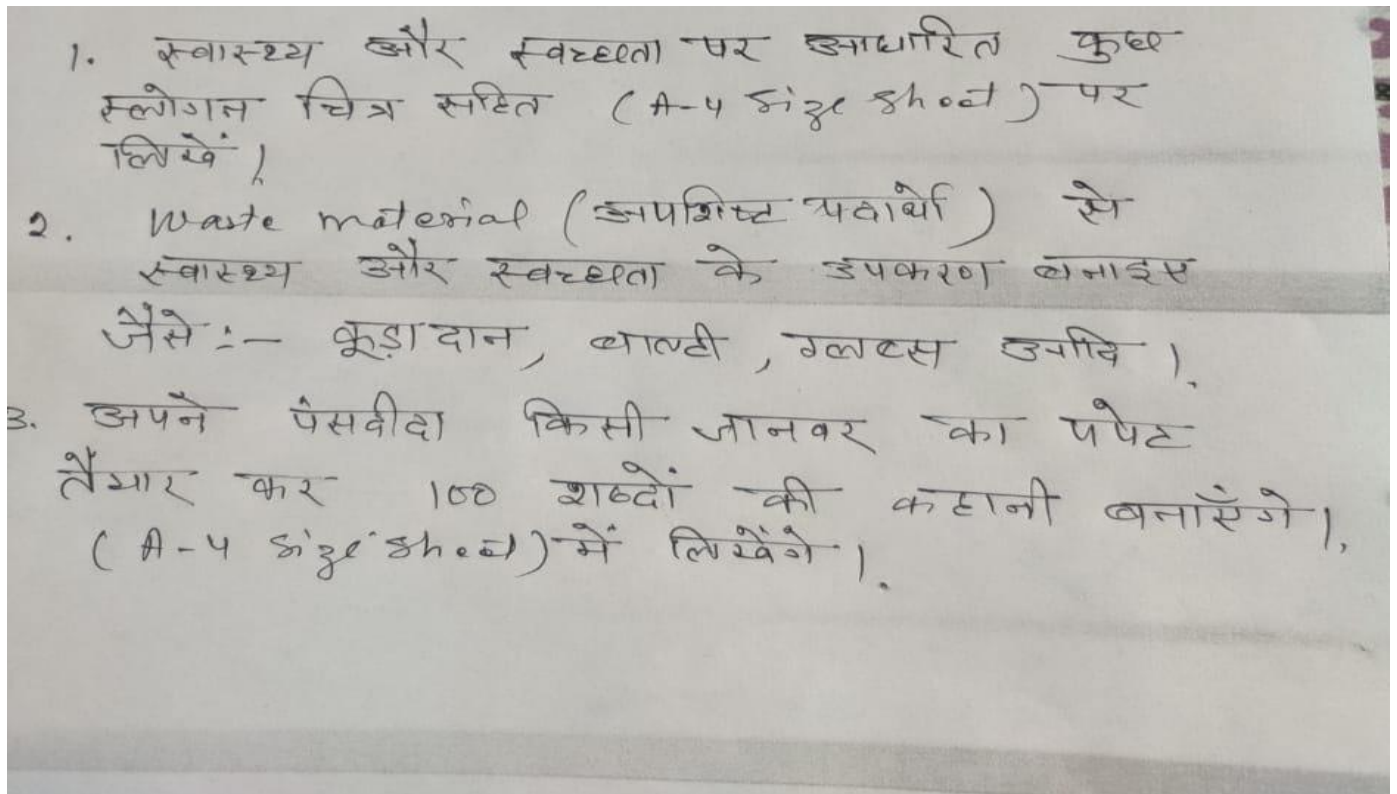 1. स्वास्थ्य और स्वच्छता पर आधारित कुछ
स्लोगन चित्र सहित (A-4 Size Sheet) पर
लिखें।
2. Waste material (अपशिष्ट पदार्थो) से
स्वास्थ्य और स्वच्छता के उपकरण बनाइए
जैसे :- कूड़ादान, बाल्टी, ग्लब्स आदि।
3. अपने पंसदीदा किसी जानवर का पपेट
तैयार कर 100 शब्दों की कहानी बनाएँगे।
(A-4 Size Sheet) में लिखेंगे।